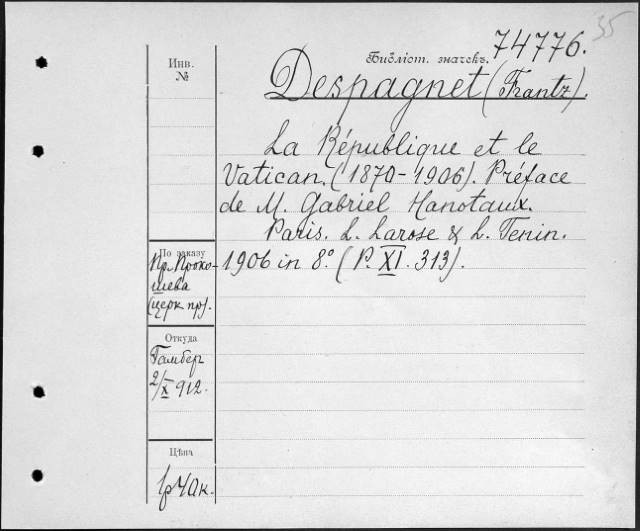 35
Инв.
№
Библіот. значекъ.
74776.
Despagnet (Frantz).
La République et le
Vatican. (1870-1906). Préface
de M. Gabriel Hanotaux.
Paris. L. Larose & L. Tenin.
1906 in 8.° (P. XI. 313).
По заказу
Пр. Проко-
шева
(церк пр).
Откуда
Гамбер
2/X 912.
Цѣна
1р 40к.